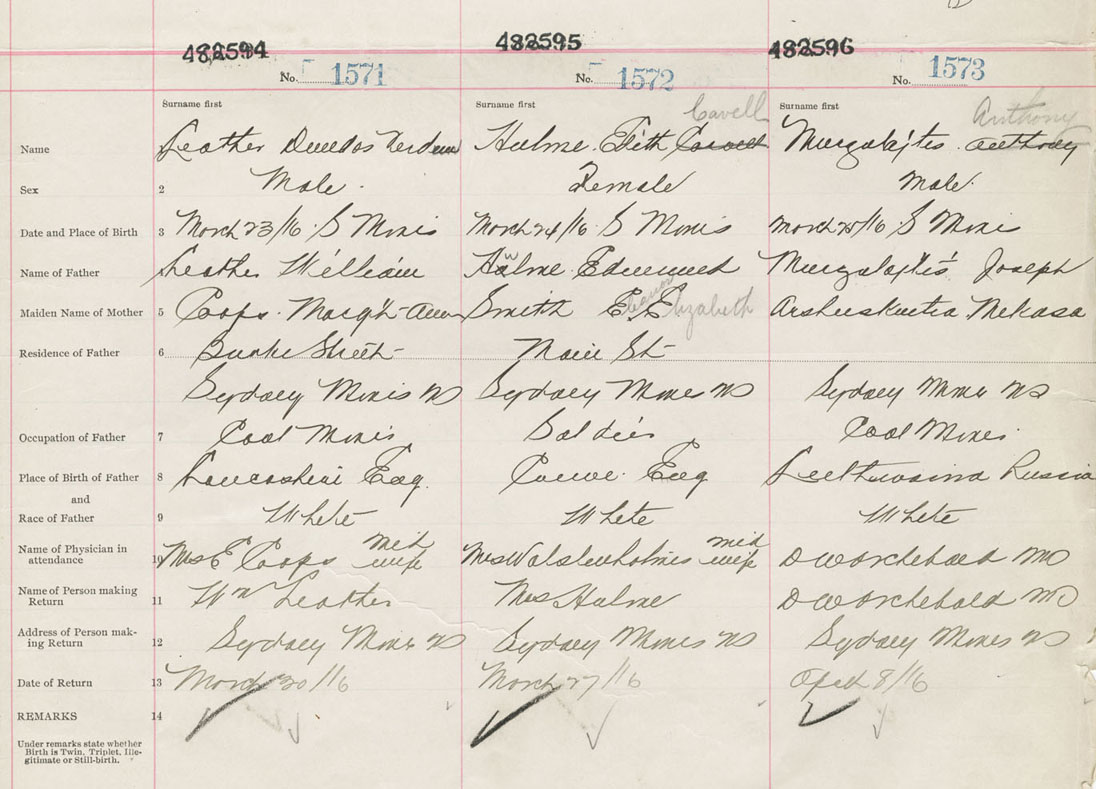 482594 482595 482596
No. 1571 No. 1572 No. 1573
Surname first Surname first Cavell Surname first Anthony
Name Leather Dundas Verdun Hulme Edith Cavell Anthony
Sex 2 Male Female Male
Date and Place of Birth 3 March 23/16 S Mines March 24/16 S Mines March 25/16 S Mines
Name of Father Leather William Hulme Edmund Joseph
Maiden Name of Mother 5 Coops Margt Ann Smith E E Elizabeth
Residence of Father 6 Street Main St
Sydney Mines NS Sydney Mines NS Sydney Mines NS
Occupation of Father 7 Coal Miner Soldier Coal Miner
Place of Birth of Father 8 Lancashire Eng. Crewe Eng Russia
and
Race of Father 9 White White White
Name of Physician in mid mid
attendance 10 Mrs E Coops wife Mrs wife D W Archibald MD
Name of Person making
Return 11 Wm Leather Mrs Hulme D W Archibald MD
Address of Person mak-
ing Return 12 Sydney Mines NS Sydney Mines NS Sydney Mines NS
Date of Return 13 March 30/16 March 27/16 April 8/16
REMARKS 14
Under remarks state whether
Birth is Twin, Triplet, Ille-
gitimate or Still-birth.